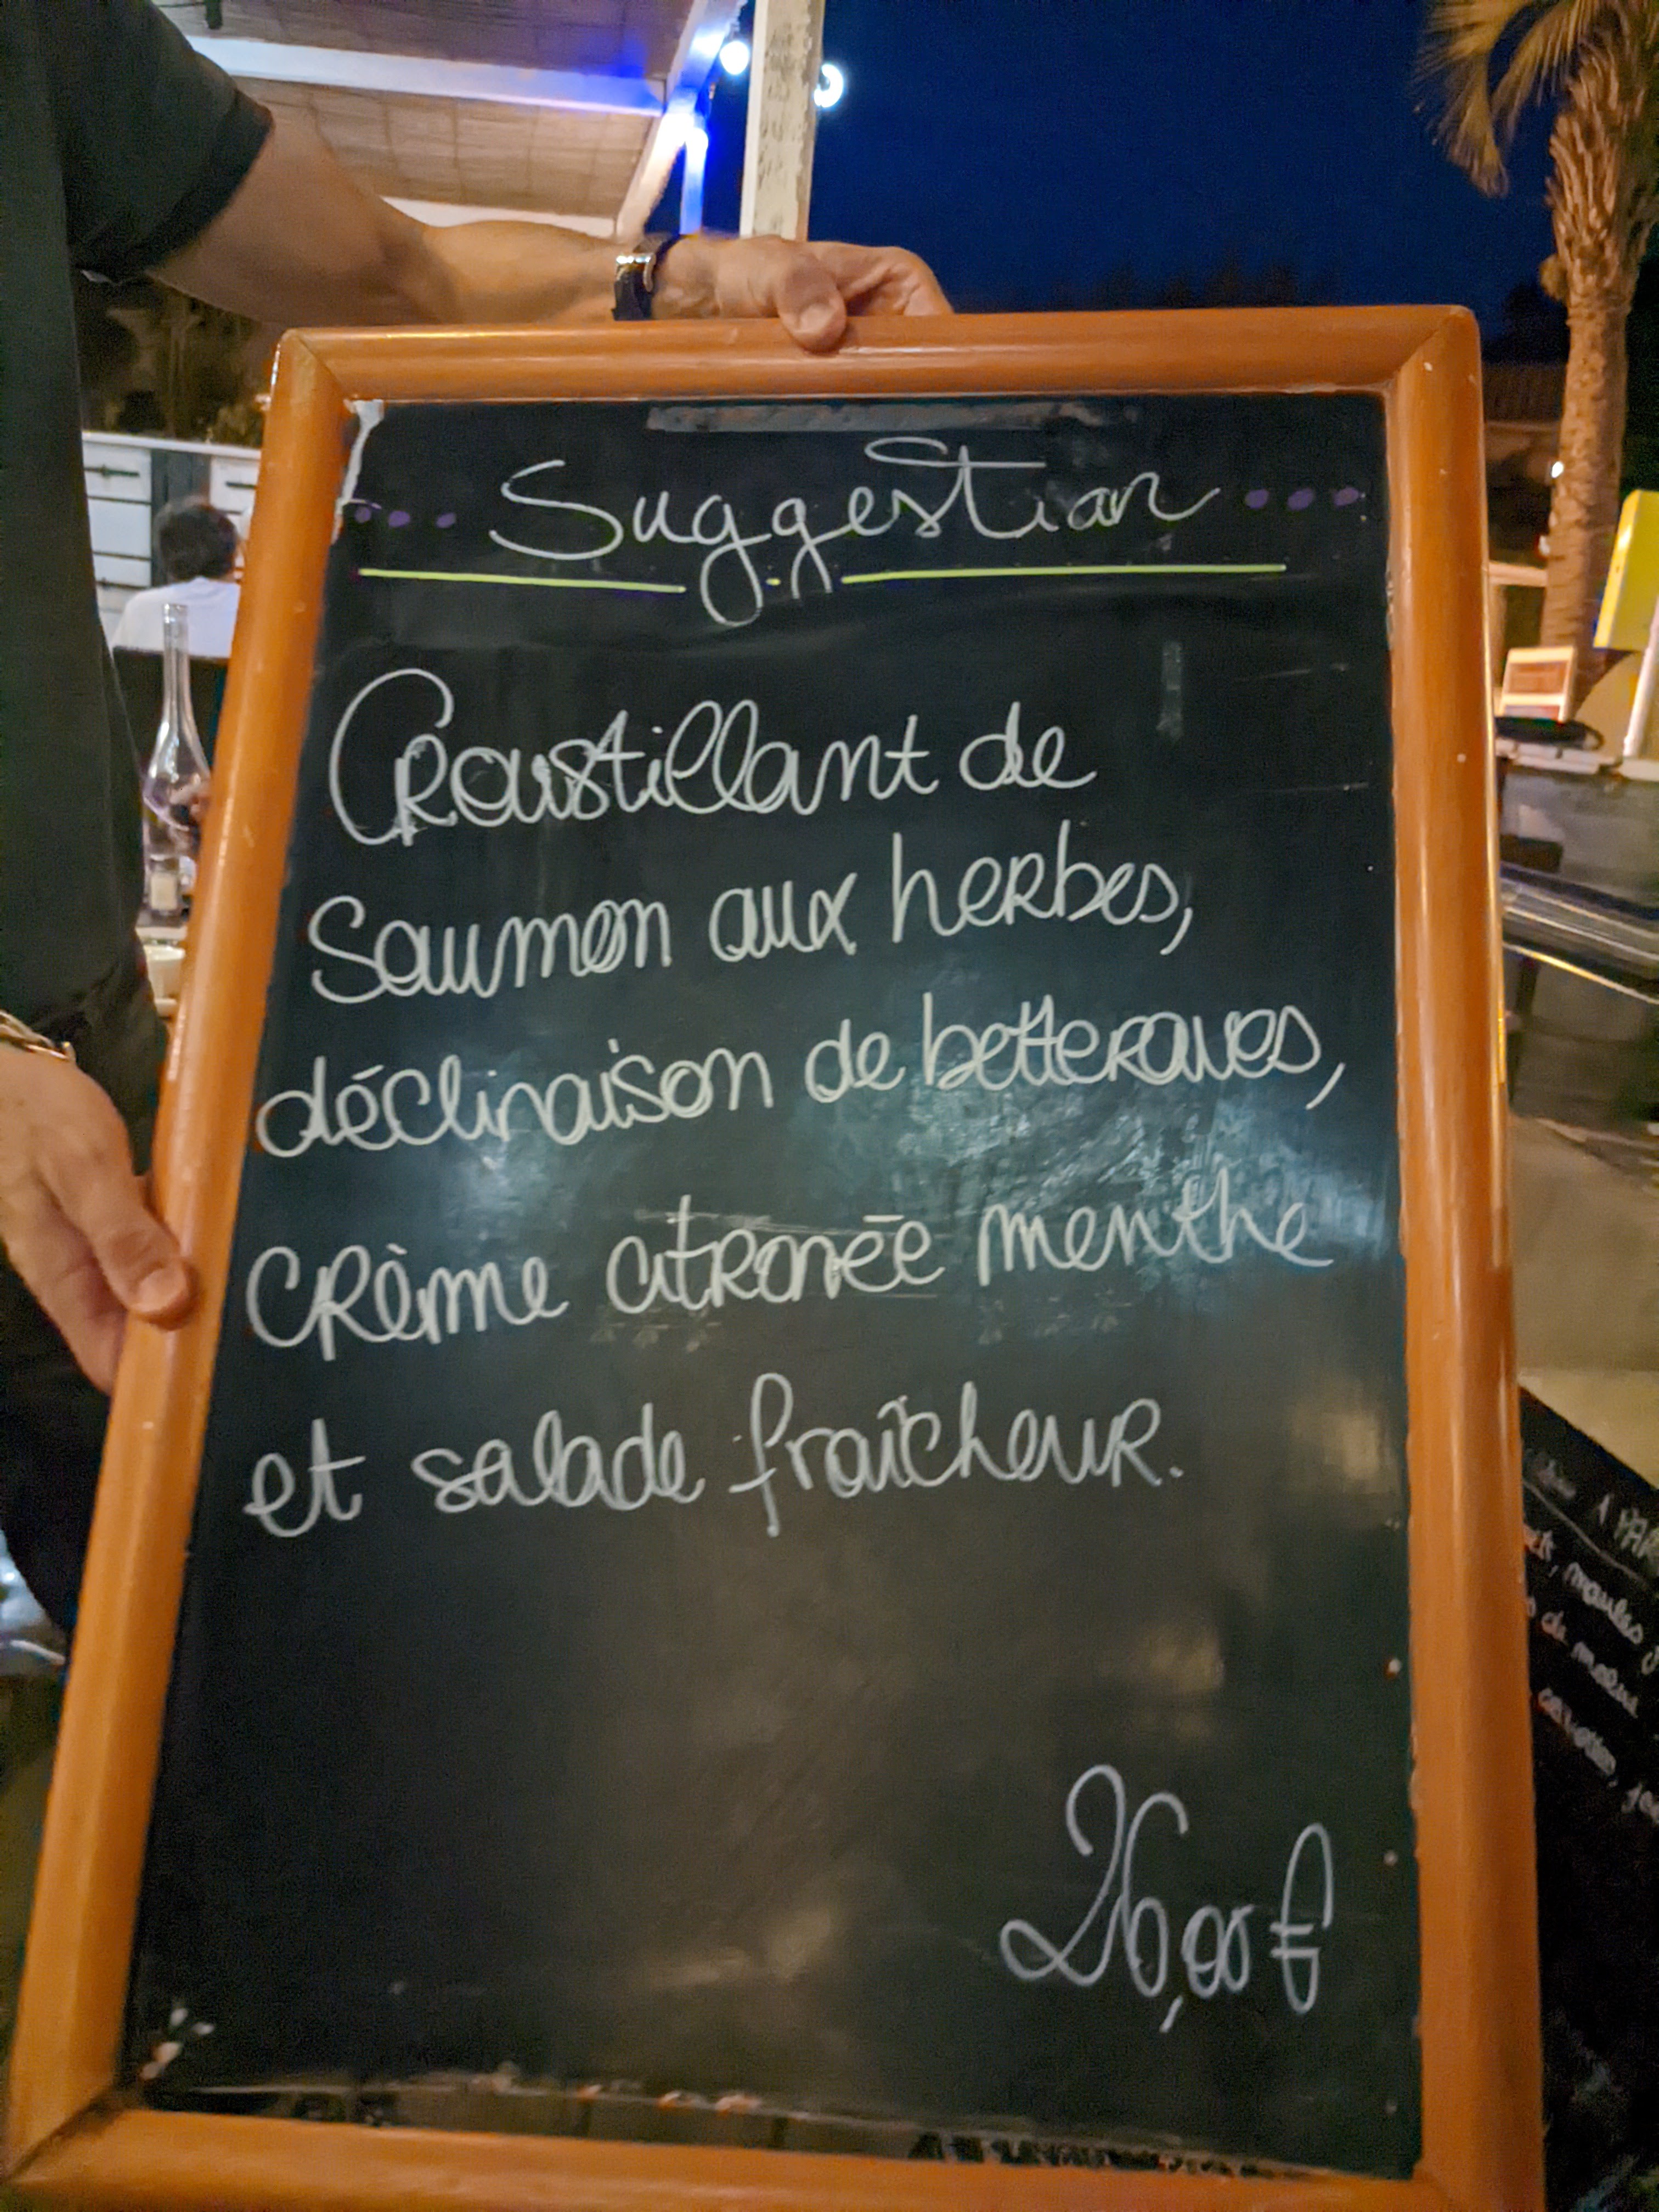 Suggestion
Croustillant de
Saumon aux herbes,
déclinaison de betteraves,
Crème citronée menthe
et salade fraîcheur.
26,00€
A PAR
moules
du